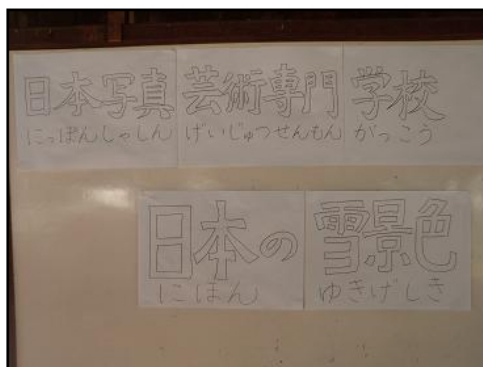 日本写真芸術専門学校
にっぽんしゃしんげいじゅつせんもんがっこう
日本の雪景色
にほんゆきげしき